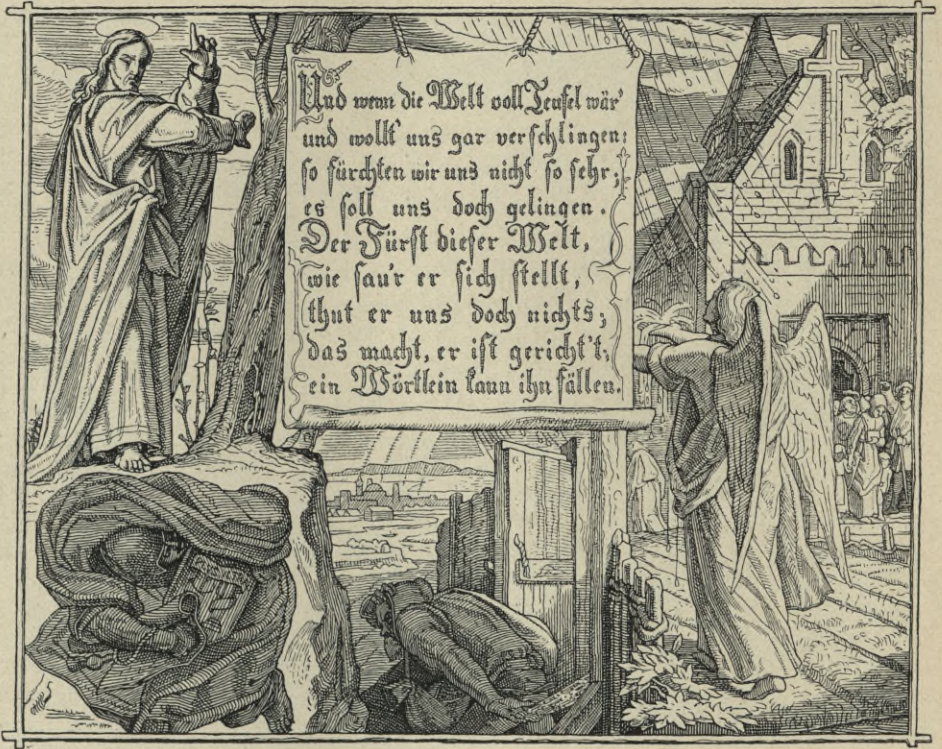 Und wenn die Welt voll Teufel wär'
und wollt' uns gar verschlingen:
so fürchten wir uns nicht so sehr;
es soll uns doch gelingen.
Der Fürst dieser Welt,
wie sau'r er sich stellt,
thut er uns doch nichts;
das macht, er ist gericht't;
ein Wörtlein kann ihn fällen.